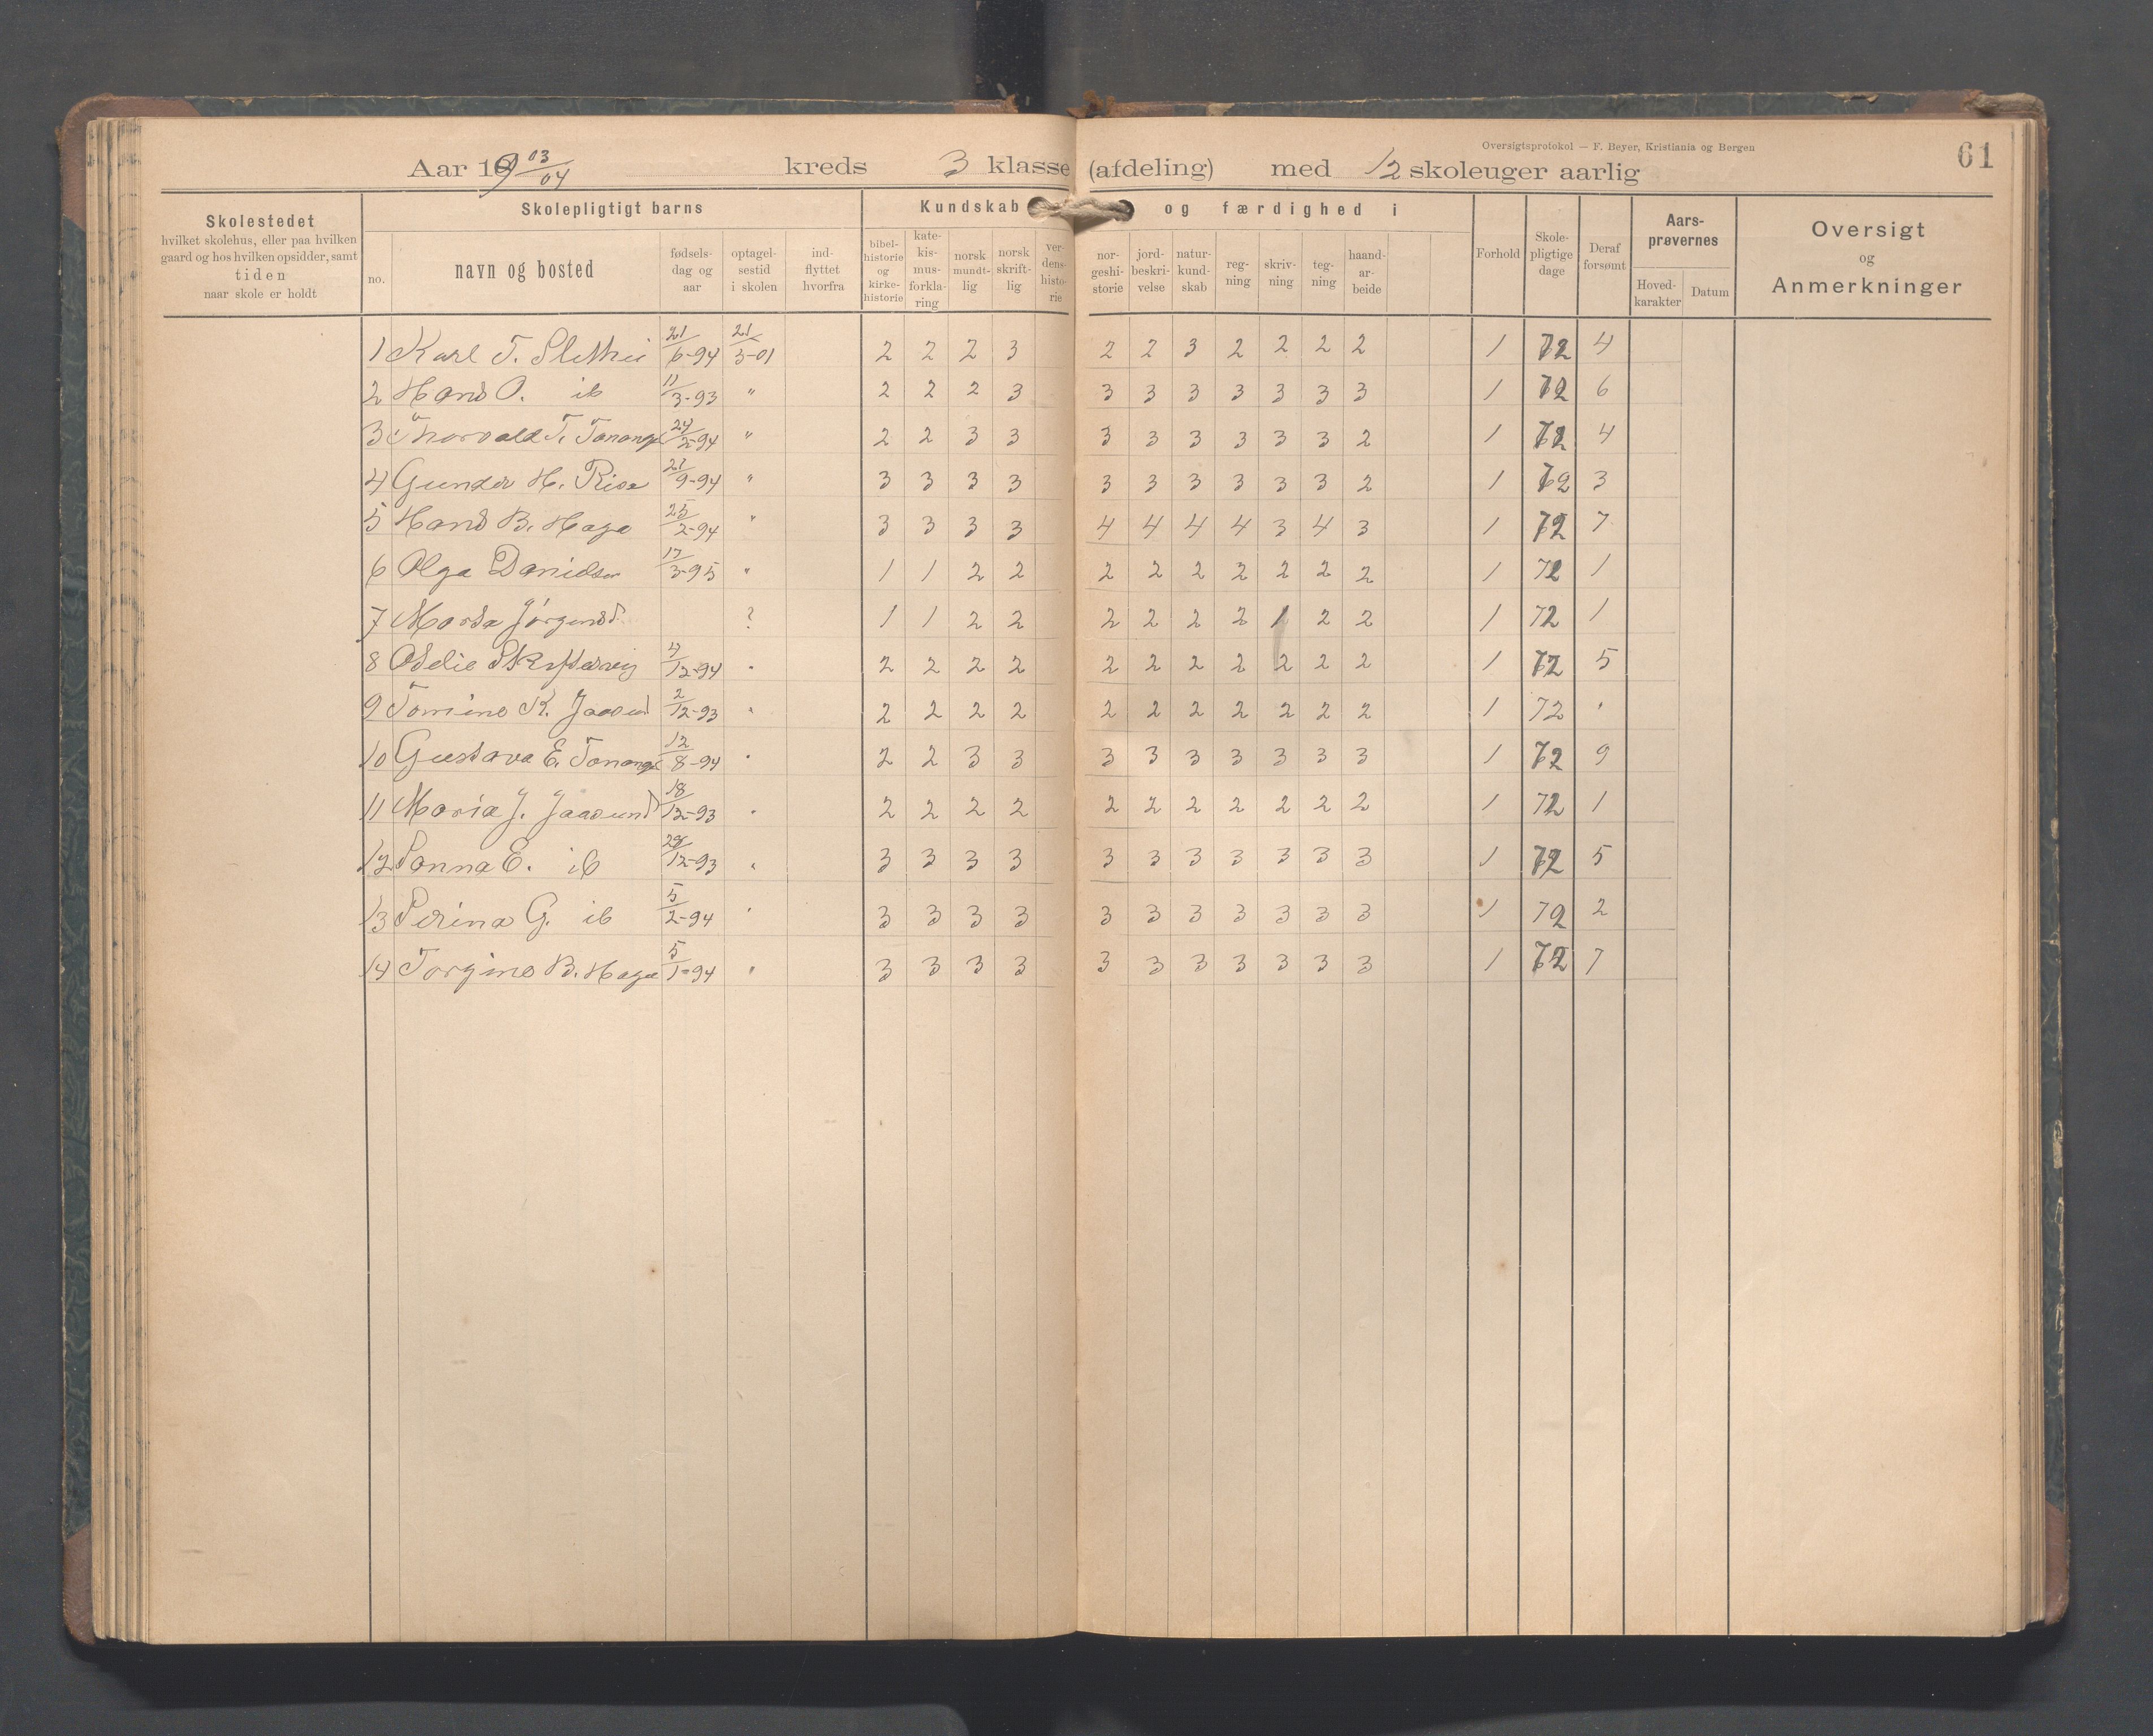 Oversigtsprotokol — F. Beyer, Kristiania og Bergen
61
Aar 1903/04 kreds 3 klasse (afdeling) med 12 skoleuger aarlig
Skolestedet hvilket skolehus, eller paa hvilken gaard og hos hvilken opsidder, samt tiden naar skole er holdt
Skolepligtigt barns
Kundskab og færdighed i
no. navn og bosted fødsels-dag og aar optagel-sestid i skolen ind-flyttet hvorfra
bibel-historie og kirke-historie kate-kis-mus-forkla-ring norsk mundt-lig norsk skrift-lig ver-dens-histo-rie
nor-geshi-storie jord-beskri-velse natur-kund-skab reg-ning skriv-ning teg-ning haand-ar-beide
Forhold Skole-pligtige dage Deraf forsømt Aars-prøvernes Hoved-karakter Datum
Oversigt og Anmerkninger
1 Karl T. 21/6-94 21/3-01 2 2 2 3 2 2 3 2 2 2 2 1 72 4
2 Hans O. ib 11/3-93 " 2 2 2 3 3 3 3 3 3 3 3 1 72 6
3 Thorvald T. Tananger 24/2-94 " 2 2 3 3 3 3 3 3 3 3 2 1 72 4
4 Gunder H. Risa 21/9-94 " 3 3 3 3 3 3 3 3 3 3 2 1 72 3
5 Hans B. Haga 25/2-94 " 3 3 3 3 4 4 4 4 3 4 3 1 72 7
6 Olga Danielsen 17/3-95 " 1 1 2 2 2 2 2 2 2 2 2 1 72 1
7 Marta Jørgensd. ? 1 1 2 2 2 2 2 2 1 2 2 1 72 1
8 12-94 " 2 2 2 2 2 2 2 2 2 2 2 1 72 5
9 Tomine K. Jaasund 2/12-93 " 2 2 2 2 2 2 2 2 2 2 2 1 72 "
10 Gustava E. Tananger 12/8-94 " 2 2 3 3 3 3 3 3 3 3 3 1 72 9
11 Maria J. Jaasund 18/12-93 " 2 2 2 2 2 2 2 2 2 2 2 1 72 1
12 Sanna E. ib 12-93 " 3 3 3 3 3 3 3 3 3 3 3 1 72 5
13 Serina G. ib 5/2-94 " 3 3 3 3 3 3 3 3 3 3 3 1 72 2
14 Torgine B. Haga 5/1-94 " 3 3 3 3 3 3 3 3 3 3 3 1 72 7